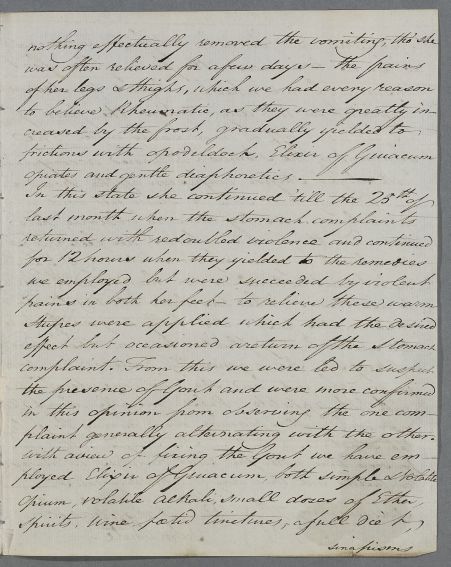 nothing effectually removed the vomiting, tho' she
was often relieved for a few days — the pains
of her legs & thighs, which we had every reason
to believe Rheumatic, as they were greatly in-
creased by the frost, gradually yielded to
frictions with opodeldock, Elixir of Guiacum
opiates and gentle diaphoretics. —
In this state she continued 'till the 25th of
last month when the stomach complaints
returned with redoubled violence and continued
for 12 hours when they yielded to the remedies
we employed but were succeeded by violent
pains in both her feet — to relieve these warm
Stupes were applied which had the desired
effect but occasioned a return of the stomach
complaint. From this we were led to suspect
the presence of Gout and were more confirmed
in this opinion from observing the one com-
plaint generally alternating with the other.
with a view of fixing the Gout we have em-
ployed Elixir of Guacum, both simple & Volatile
Opium, volatile alkali, small doses of Ether,
Spirits, wine, fœtid tinctures, a full diet,
sinapisms